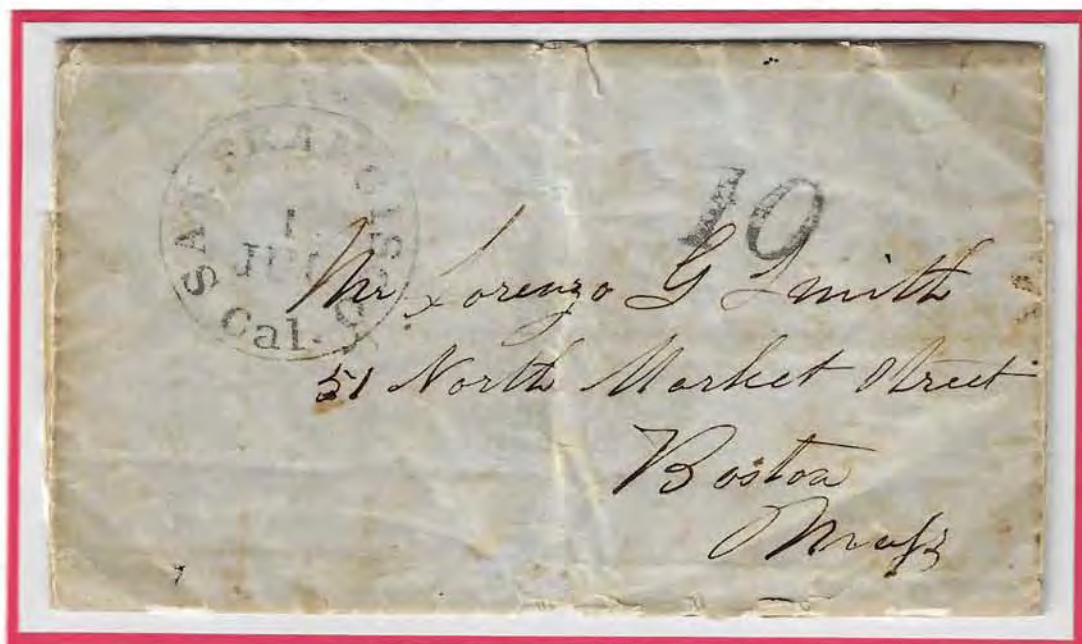 SAN FRANCISCO
Cal.
1
10
Mr Lorenzo G Smith
51 North Market Street
Boston
Mass